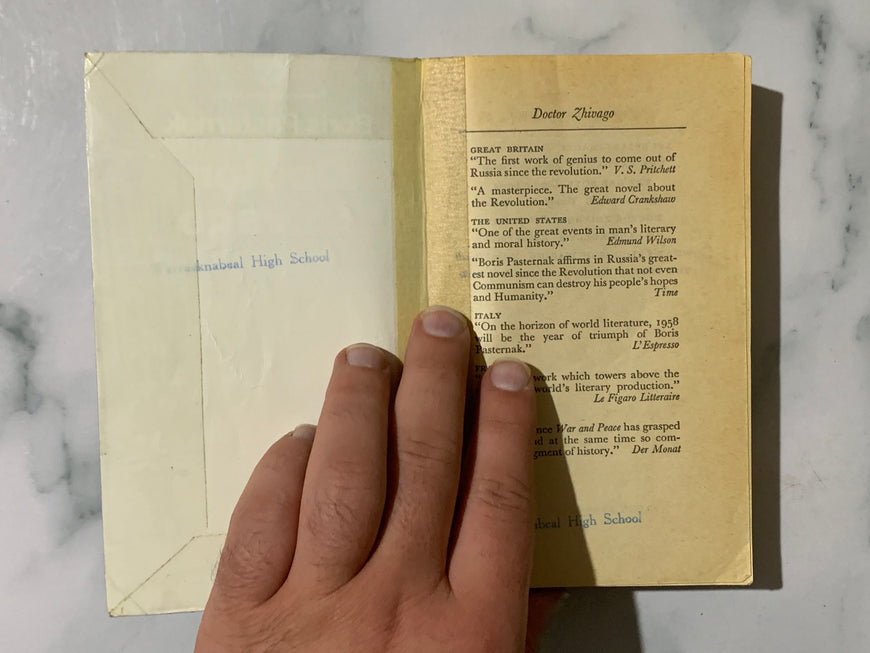 High School
Doctor Zhivago
GREAT BRITAIN
“The first work of genius to come out of
Russia since the revolution.” V. S. Pritchett
“A masterpiece. The great novel about
the Revolution.” Edward Crankshaw
THE UNITED STATES
“One of the great events in man’s literary
and moral history.” Edmund Wilson
“Boris Pasternak affirms in Russia’s great-
est novel since the Revolution that not even
Communism can destroy his people’s hopes
and Humanity.” Time
ITALY
“On the horizon of world literature, 1958
will be the year of triumph of Boris
Pasternak.” L’Espresso
work which towers above the
world’s literary production.”
Le Figaro Litteraire
War and Peace has grasped
at the same time so com-
of history.” Der Monat
High School